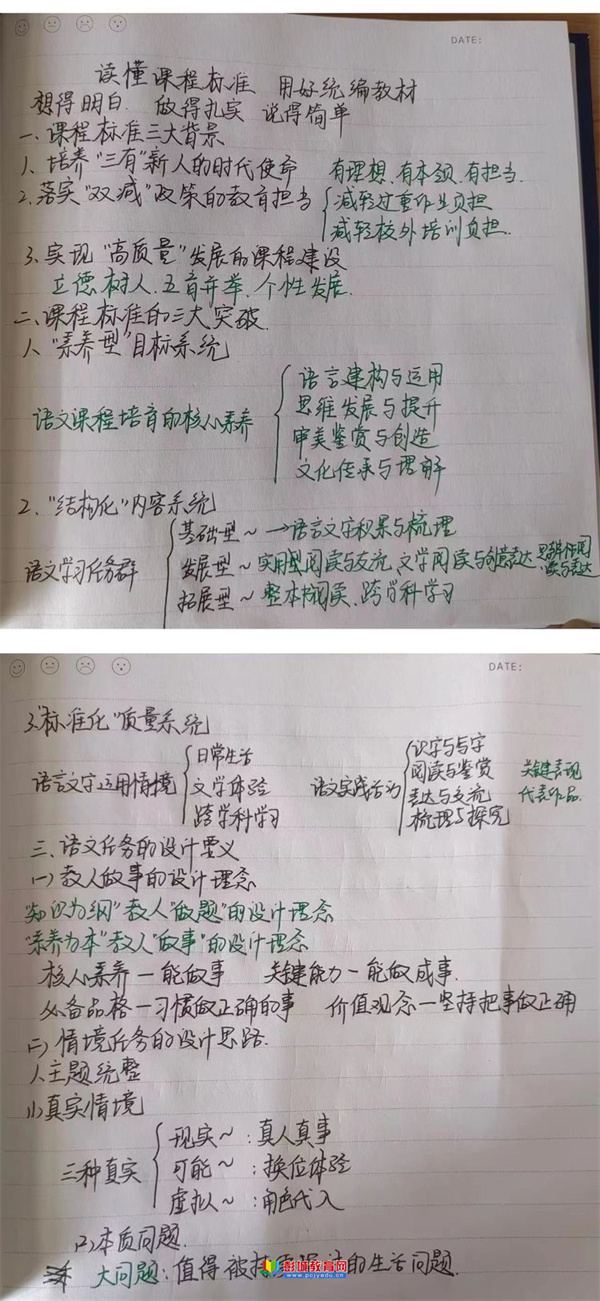 DATE:
读懂课程标准 用好统编教材
想得明白 做得扎实 说得简单
一、课程标准三大背景
1、培养"三有"新人的时代使命 有理想、有本领、有担当.
2.落实"双减"政策的教育担当 减轻过重作业负担
减轻校外培训负担.
3.实现"高质量"发展的课程建设
立德树人、五育并举、个性发展.
二、课程标准的三大突破.
1、"素养型"目标系统
语文课程培育的核心素养
语言建构与运用
思维发展与提升
审美鉴赏与创造
文化传承与理解
2."结构化"内容系统
语文学习任务群
基础型~→语言文字积累与梳理
发展型~实用型阅读与交流、文学阅读与创意表达、思辨性阅读与表达
拓展型~整本书阅读、跨学科学习
DATE:
3."标准化"质量系统
语言文字运用情境
日常生活
文学体验
跨学科学习
语文实践活动
识字与写字
阅读与鉴赏
表达与交流
梳理与探究
关键表现
代表作品.
三、语文任务的设计要义
(一)教人做事的设计理念
"知识为纲"教人"做题"的设计理念
"素养为本"教人"做事"的设计理念
核心素养—能做事 关键能力—能做成事.
必备品格—习惯做正确的事 价值观念—坚持把事做正确
(二)情境任务的设计思路.
1、主题统整
(1)真实情境
三种真实
现实~:真人真事
可能~:换位体验
虚拟~:角色代入
(2)本质问题.
大问题:值得被 的生活问题.
彭城教育网
www.pcjyedu.cn